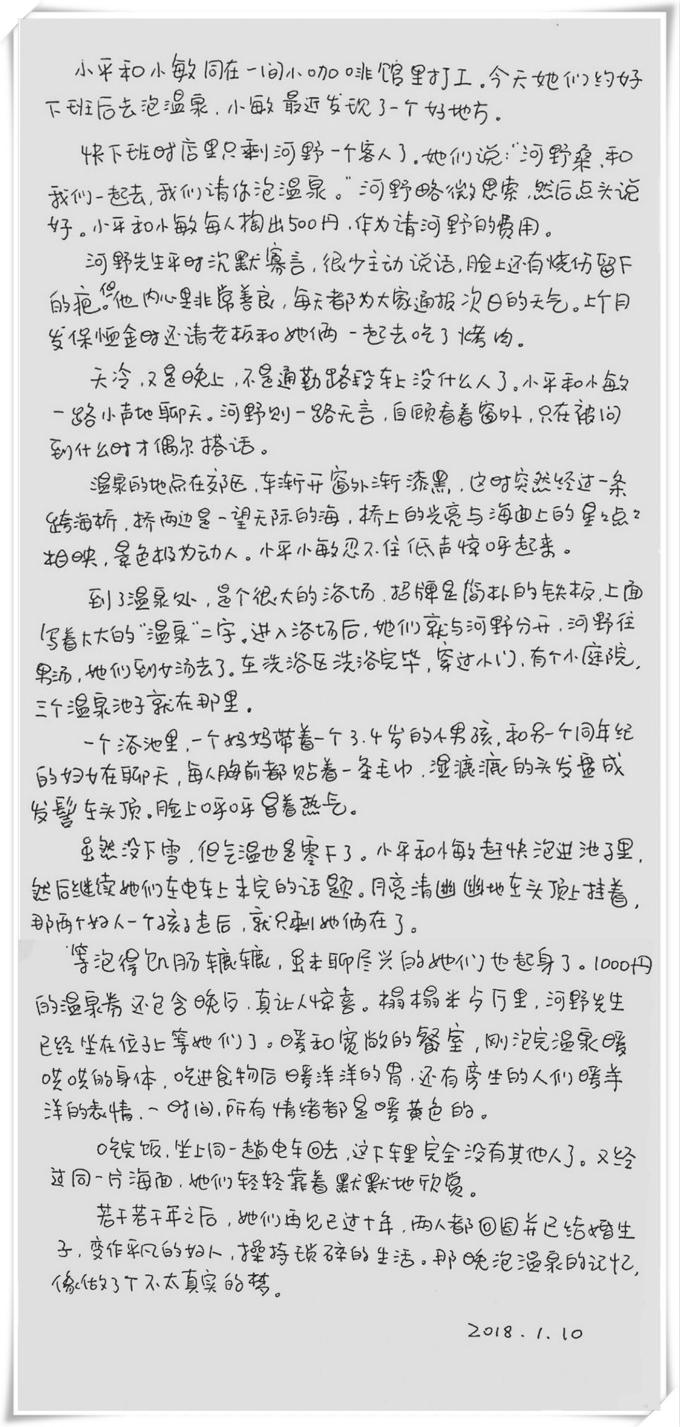 小平和小敏同在一间小咖啡馆里打工。今天她们约好
下班后去泡温泉，小敏最近发现了一个好地方。
快下班时店里只剩河野一个客人了。她们说："河野桑，和
我们一起去，我们请你泡温泉。"河野略微思索，然后点头说
好。小平和小敏每人掏出500円，作为请河野的费用。
河野先生平时沉默寡言，很少主动说话，脸上还有烧伤留下
的疤。但他内心里非常善良，每天都为大家通报次日的天气。上个月
发保恤金时还请老板和她俩一起去吃了烤肉。
天冷，又是晚上，不是通勤路段车上没什么人了。小平和小敏
一路小声地聊天。河野则一路无言，自顾看着窗外，只在被问
到什么时才偶尔搭话。
温泉的地点在郊区，车渐开窗外渐漆黑，这时突然经过一条
跨海桥，桥两边是一望无际的海，桥上的光亮与海面上的星星点点
相映，景色极为动人。小平小敏忍不住低声惊呼起来。
到了温泉处，是个很大的浴场，招牌是简朴的铁板，上面
写着大大的"温泉"二字。进入浴场后，她们就与河野分开，河野往
男汤，她们到女汤去了。在洗浴区洗浴完毕，穿过小门，有个小庭院，
三个温泉池子就在那里。
一个浴池里，一个妈妈带着一个3.4岁的小男孩，和另一个同年纪
的妇女在聊天，每人胸前都贴着一条毛巾，湿漉漉的头发盘成
发髻在头顶。脸上呼呼冒着热气。
虽然没下雪，但气温也是零下了。小平和小敏赶快泡进池子里，
然后继续她们在电车上未完的话题。月亮清幽幽地在头顶上挂着，
那两个妇人一个孩子走后，就只剩她俩在了。
等泡得饥肠辘辘，虽未聊尽兴的她们也起身了。1000円
的温泉券还包含晚与，真让人惊喜。榻榻米与厅里，河野先生
已经坐在位子上等她们了。暖和宽敞的餐室，刚泡完温泉暖
哄哄的身体，吃进食物后暖洋洋的胃，还有旁坐的人们暖洋
洋的表情，一时间，所有情绪都是暖黄色的。
吃完饭，坐上同一趟电车回去，这下车里完全没有其他人了。又经
过同一片海面，她们轻轻靠着默默地欣赏。
若干若干年之后，她们再见已过十年，两人都回国并已结婚生
子，变作平凡的妇人，操持琐碎的生活。那晚泡温泉的记忆，
像做了个不太真实的梦。
2018.1.10